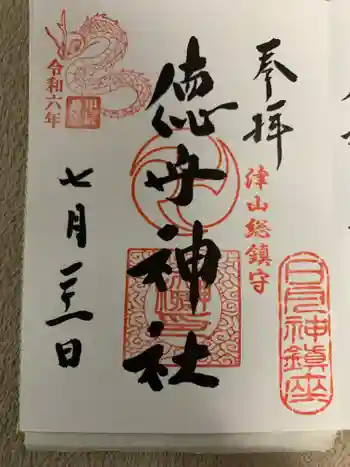 奉拝
津山総鎮守
日月神鎮座
徳守神社
令和六年
七月廿一日